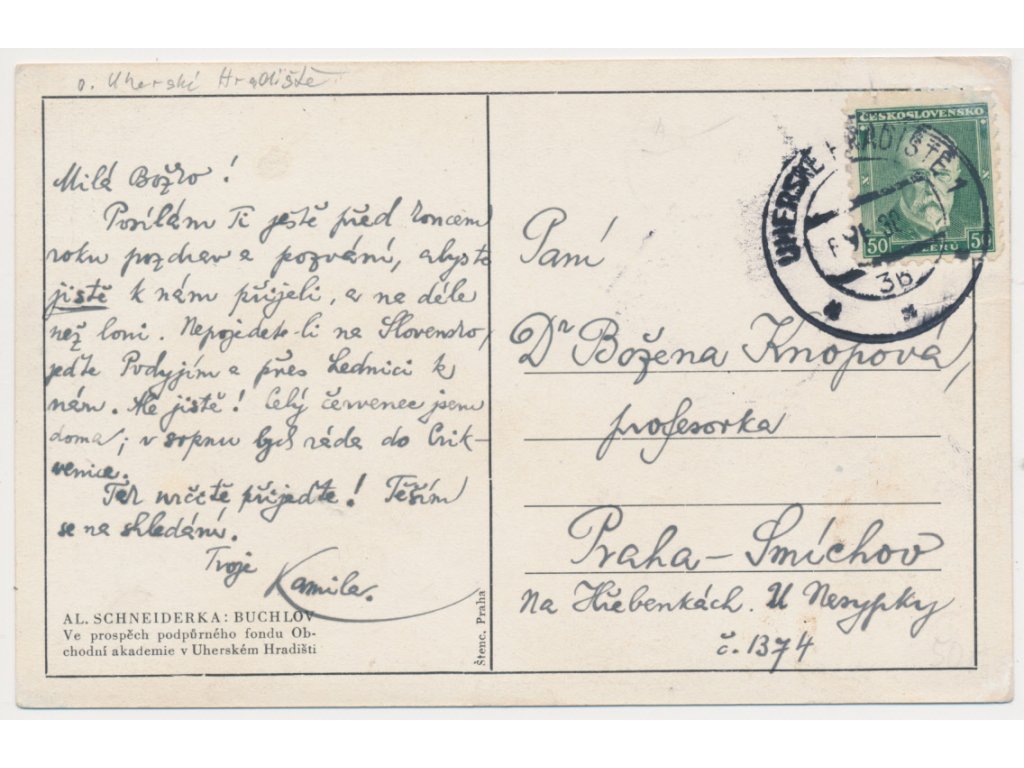 o. Uherské Hradiště
Milá Božko!
Posílám Ti ještě před koncem
roku pozdrav a pozvání, abyste
jistě k nám přijeli, a na déle
než loni. Nepojedete-li na Slovensko,
jeďte Podyjím a přes Lednici k
nám. Ale jistě! Celý červenec jsem
doma; v srpnu bych ráda do Crik-
venice.
Tak určitě přijeďte! Těším
se na shledání.
Tvoje
Kamila.
AL. SCHNEIDERKA: BUCHLOV
Ve prospěch podpůrného fondu Ob-
chodní akademie v Uherském Hradišti
Štenc, Praha
ČESKOSLOVENSKO
50 HALERŮ 50
UHERSKÉ HRADIŠTĚ 1
3b
Paní
Dr Božena Knopová,
profesorka
Praha - Smíchov
Na Hřebenkách. U Nesypky
č. 1374